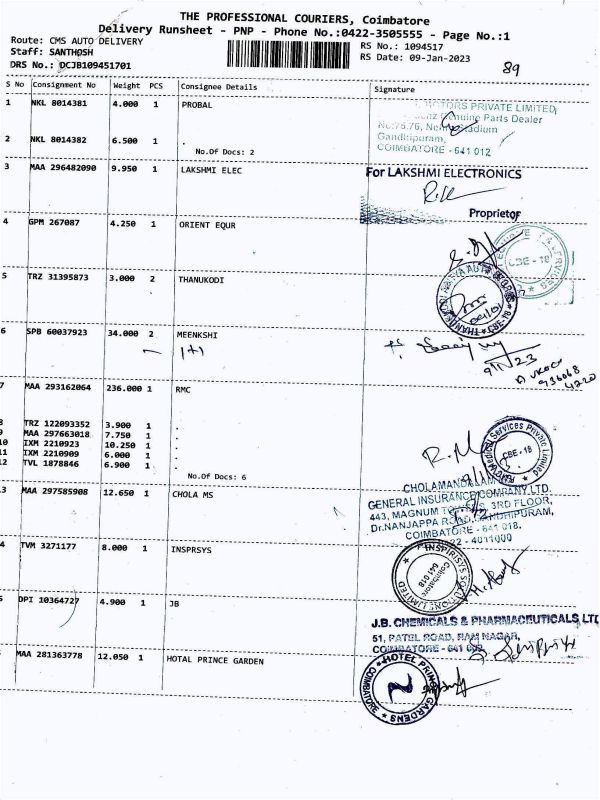 THE PROFESSIONAL COURIERS, Coimbatore
Delivery Runsheet - PNP - Phone No.:0422-3505555 - Page No.:1
Route: CMS AUTO DELIVERY
RS No.: 1094517
Staff: SANTHOSH
RS Date: 09-Jan-2023
DRS No.: DCJB109451701
89
S No Consignment No Weight PCS Consignee Details Signature
1 NKL 8014381 4.000 1 PROBAL
TORS PRIVATE LIMITED
Genuine Parts Dealer
No:75,76,
Gandhipuram,
COIMBATORE - 641 012
2 NKL 8014382 6.500 1 .
No.Of Docs: 2
3 MAA 296482090 9.950 1 LAKSHMI ELEC
For LAKSHMI ELECTRONICS
Proprietor
4 GPM 267087 4.250 1 ORIENT EQUR
CBE - 18
5 TRZ 31395873 3.000 2 THANUKODI
6 SPB 60037923 34.000 2 MEENKSHI
1+1
7 MAA 293162064 236.000 1 RMC
8 TRZ 122093352 3.900 1 .
9 MAA 297663018 7.750 1 .
10 IXM 2210923 10.250 1 .
11 IXM 2210909 6.000 1 .
12 TVL 1878846 6.900 1 .
No.Of Docs: 6
Services Private Limited
CBE - 18
13 MAA 297585908 12.650 1 CHOLA MS
CHOLAMANDALAM
GENERAL INSURANCE COMPANY LTD.
443, MAGNUM 3RD FLOOR,
Dr.NANJAPPA ROAD, GANDHIPURAM,
COIMBATORE - 641 018.
4011000
4 TVM 3271177 8.000 1 INSPRSYS
INSPIRISYS SOLUTIONS LIMITED
Coimbatore
641 018
5 DPI 10364727 4.900 1 JB
J.B. CHEMICALS & PHARMACEUTICALS LTD
51, PATEL ROAD, RAM NAGAR,
COIMBATORE - 641 009
MAA 281363778 12.050 1 HOTAL PRINCE GARDEN
HOTEL PRINCE GARDENS
COIMBATORE